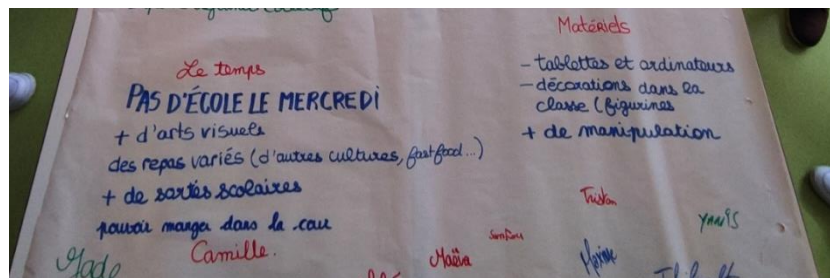 Le temps
PAS D'ÉCOLE LE MERCREDI
+ d'arts visuels
des repas variés (d'autres cultures, fastfood...)
+ de sortés scolaires
pouvoir manger dans la cour
Matériels
- tablettes et ordinateurs
- décorations dans la
classe (figurines
+ de manipulation
Tristan
Ynnis
Camille.
Maëva
Maxime
Jade